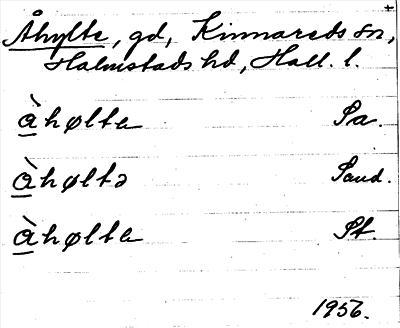 Åhylte, gd, Kinnareds sn,
Halmstads hd, Hall. l.
à̲hølta Sa.
à̲høltə Sand.
à̲hølta St.
1956.